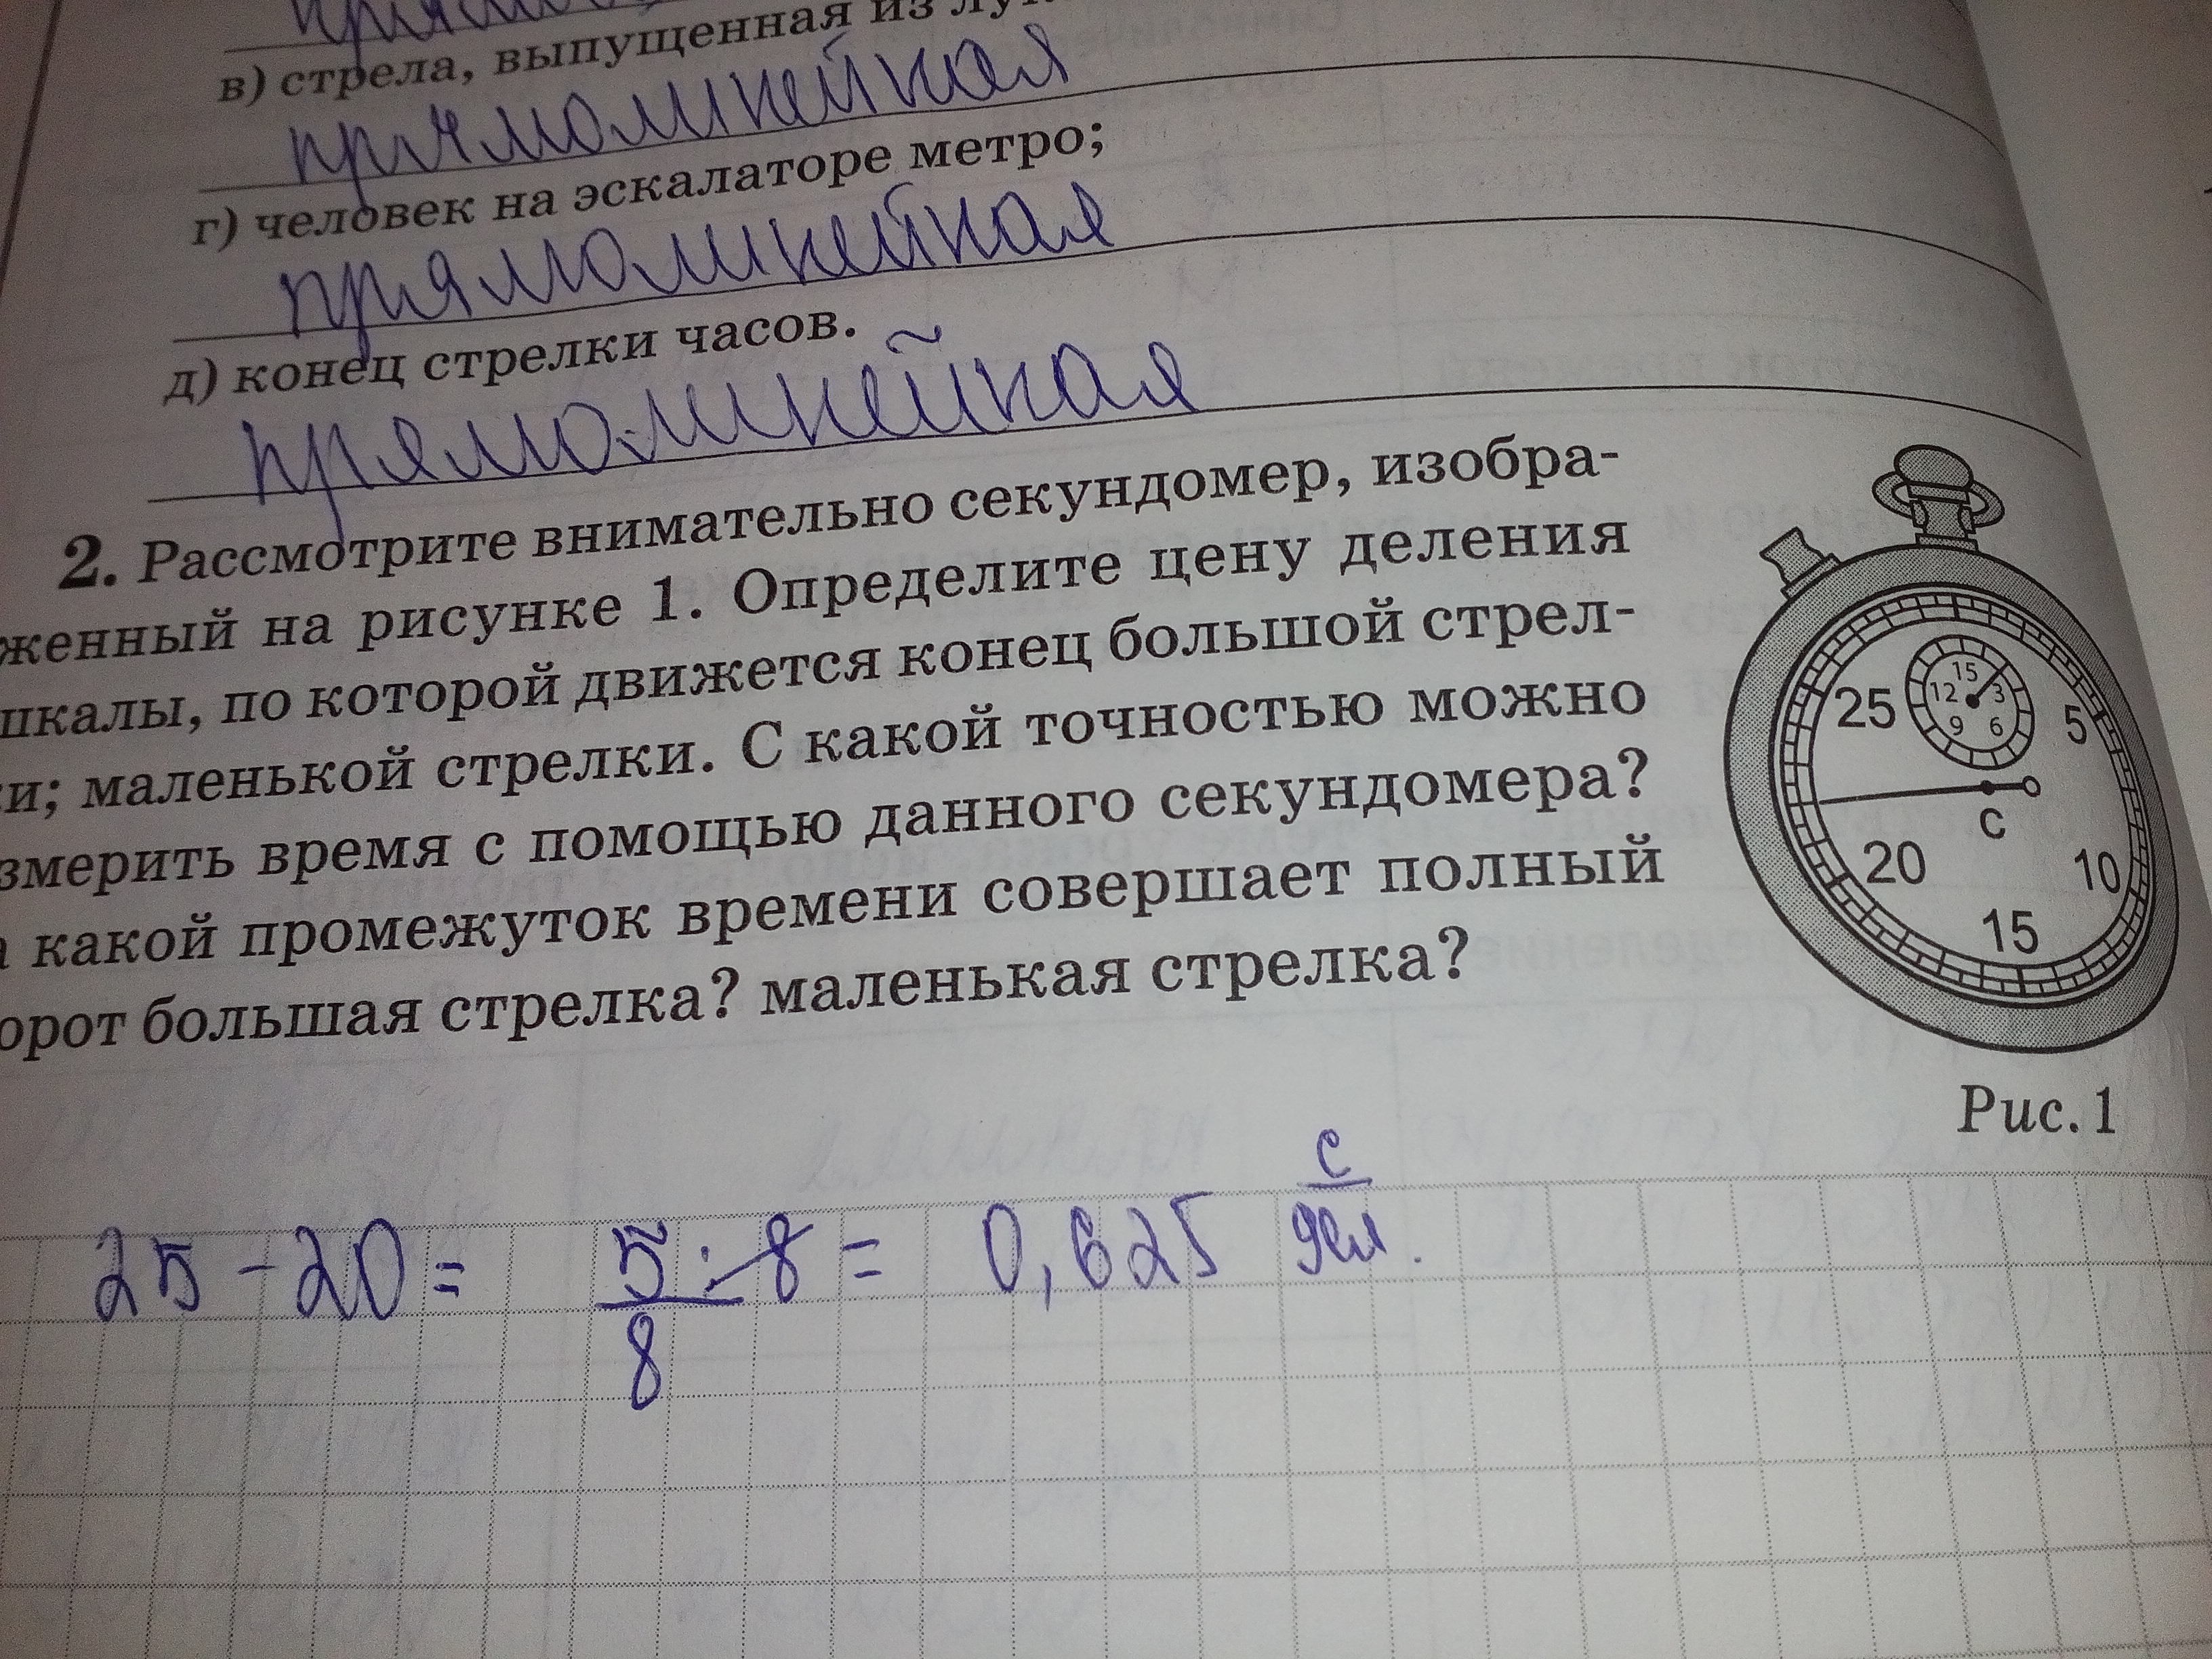 в) стрела, выпущенная из
прямолинейная
г) человек на эскалаторе метро;
прямолинейная
д) конец стрелки часов.
прямолинейная
2. Рассмотрите внимательно секундомер, изобра-
женный на рисунке 1. Определите цену деления
шкалы, по которой движется конец большой стрел-
ки; маленькой стрелки. С какой точностью можно
измерить время с помощью данного секундомера?
какой промежуток времени совершает полный
орот большая стрелка? маленькая стрелка?
15
12 3
9 6
25 5
С
20 10
15
Рис. 1
25 - 20 = 5 : 8 = 0,625 с
8 дел.